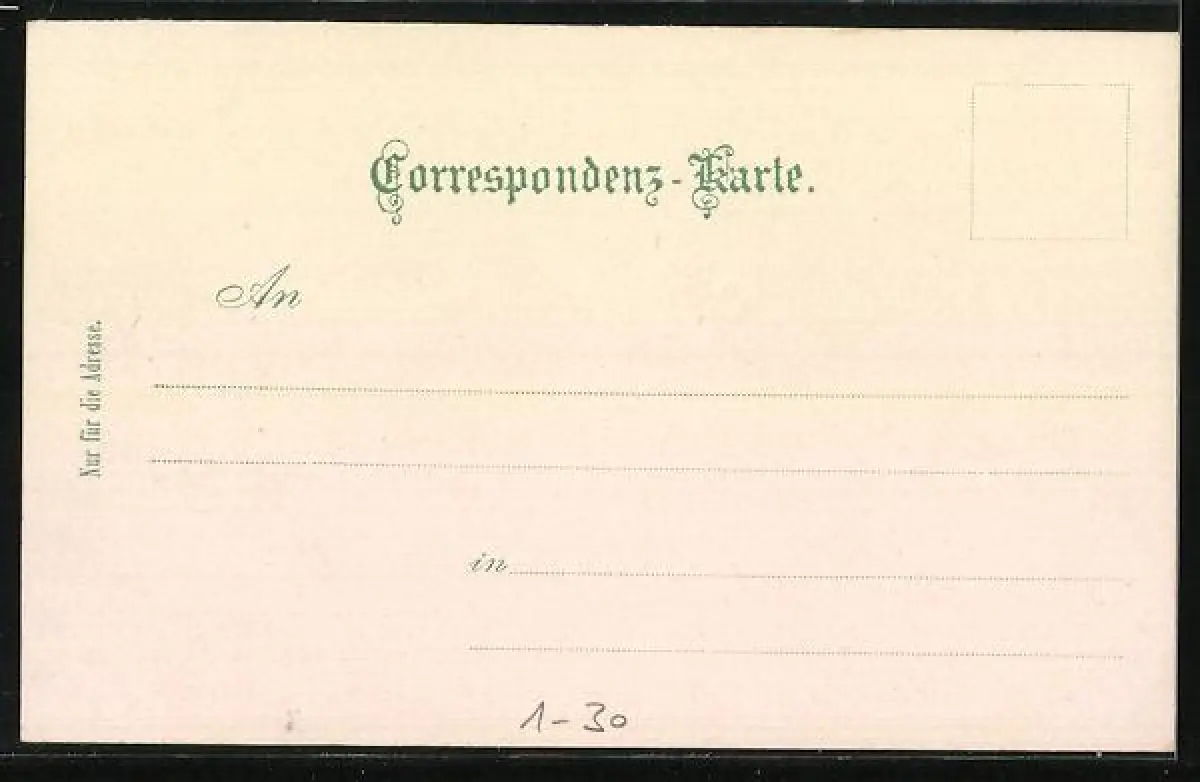 Correspondenz-Karte.
An
Nur für die Adresse.
in
1-30